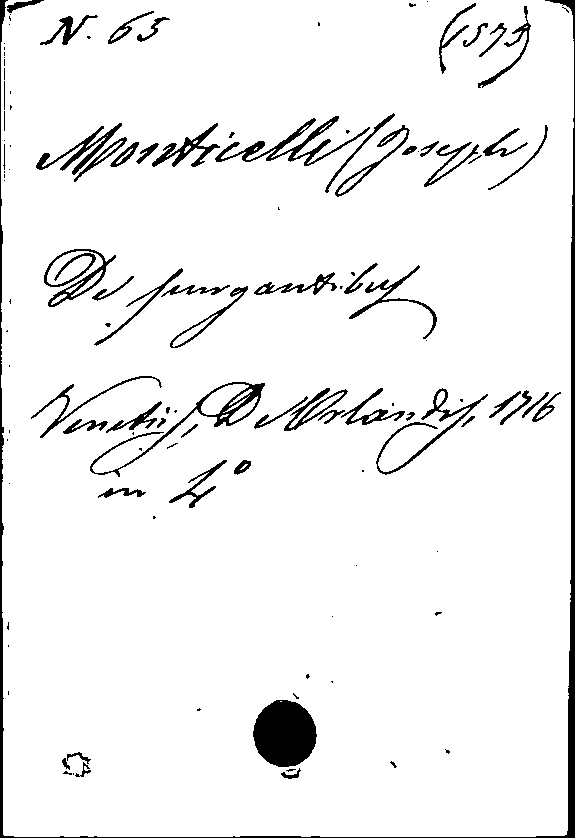 N. 65 (1573)
Monticelli (Joseph)
De purgantibus
Venetiis, De Orlandis, 1716
in 4°